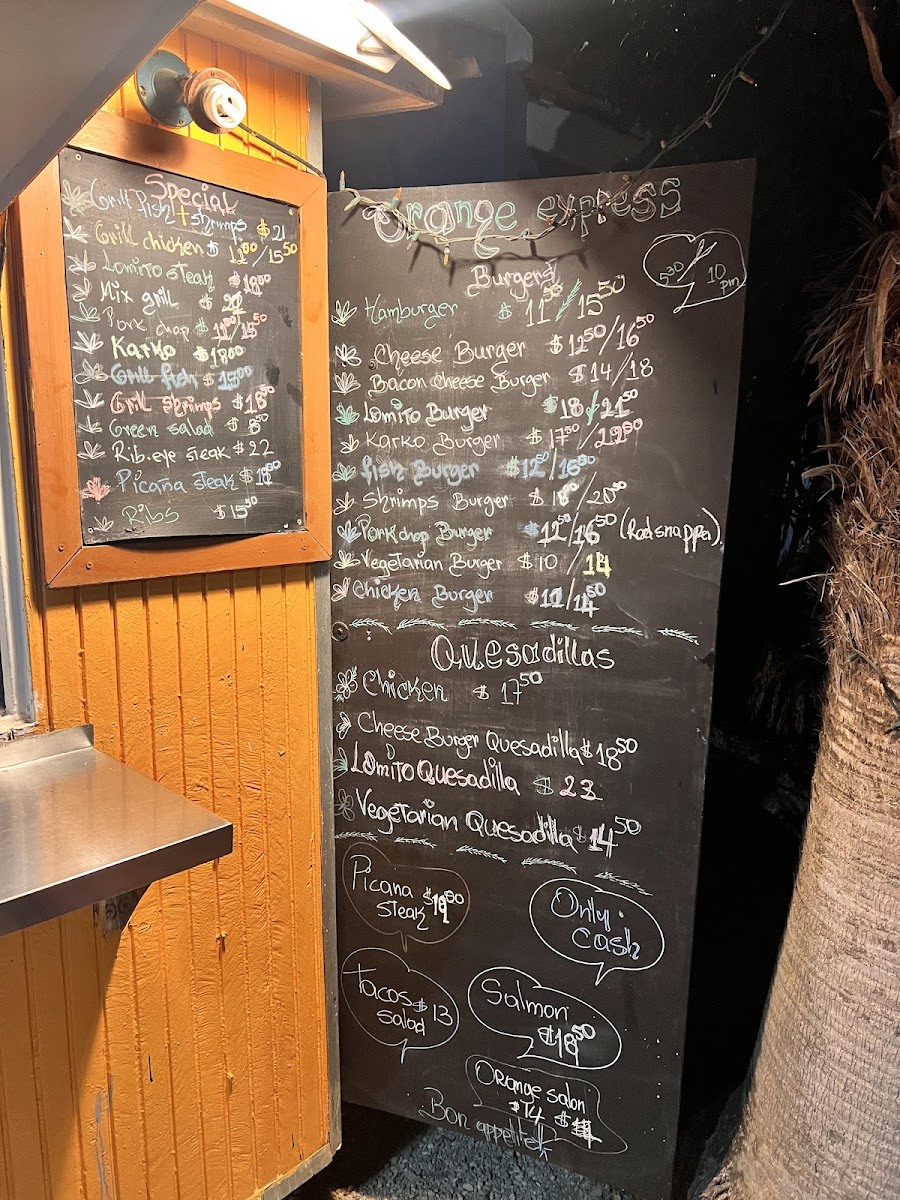 Special
Grill fish + shrimps $ 21
Grill chicken $ / 15 50
Lomito steak $
Mix grill $
Pork chop $ 11 50/15 50
Karko $ 18 00
Grill fish $ 15 00
Grill shrimps $ 18 50
Green salad $ 8 50
Rib.eye steak $ 22
Picana steak $
Ribs $ 15 50
Orange express
5 30 / 10 pm
Burgers
Hamburger $ 11 50 / 15 50
Cheese Burger $ 12 50/16 50
Bacon cheese Burger $14/18
Lomito Burger $18 / 21 50
Karko Burger $ 17 50/22 50
fish Burger $12 50/16 50
Shrimps Burger $ 18 / 20 50
Porkchop Burger $12 50/16 50 (Redsnapper)
Vegetarian Burger $10 / 14
Chicken Burger $11/14 50
Quesadillas
Chicken $ 17 50
Cheese Burger Quesadilla $18 50
Lomito Quesadilla $ 23
Vegetarian Quesadilla $ 14 50
Picana $
steak
Only.
cash
Tacos $ 13
salad
Salmon
$18 50
Orange salon
$14
Bon appetite